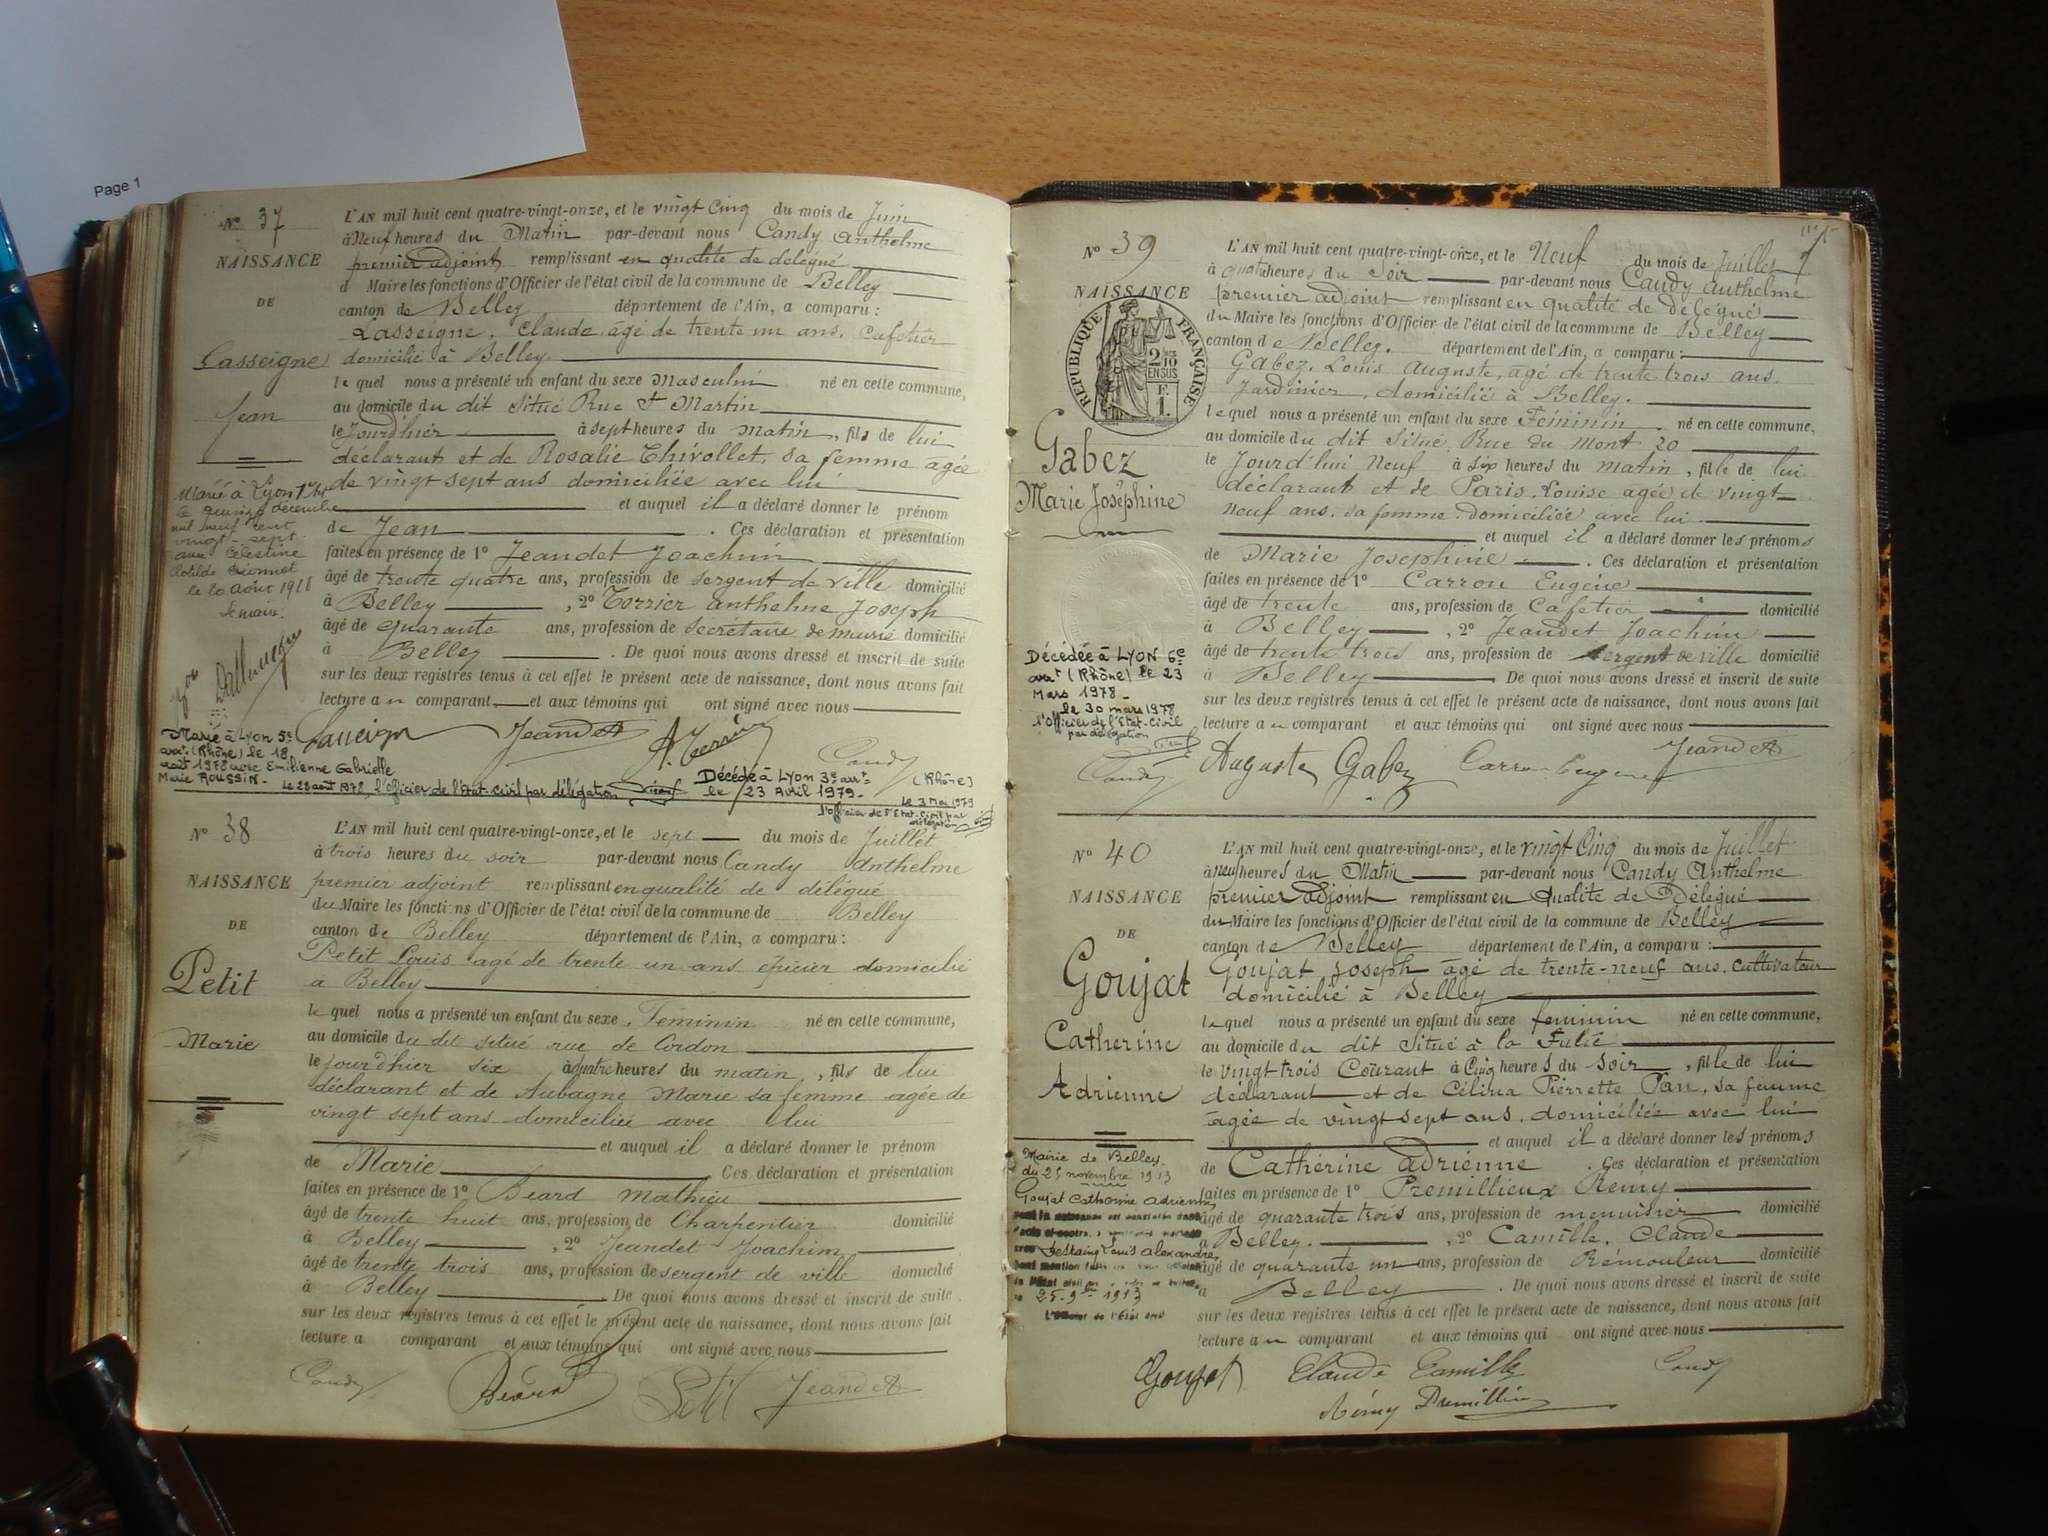 Page 1
N° 37
NAISSANCE
DE
Lasseigne
Jean
L'AN mil huit cent quatre-vingt-onze, et le vingt Cinq du mois de Juin
à Neuf heures du Matin par-devant nous Candy Anthelme
premier adjoint remplissant en qualité de délégué
d Maire les fonctions d'Officier de l'état civil de la commune de Belley
canton de Belley département de l'Ain, a comparu :
Lasseigne, Claude âgé de trente un ans. Cafetier
domicilié à Belley.
le quel nous a présenté un enfant du sexe Masculin né en cette commune,
au domicile du dit Situé Rue St Martin
le Jourd'hier à sept heures du matin, fils de lui
déclarant et de Rosalie Thivollet, sa femme agée
de vingt sept ans domiciliée avec lui
et auquel il a déclaré donner le prénom
de Jean . Ces déclaration et présentation
faites en présence de 1° Jeandet Joachim
âgé de trente quatre ans, profession de Sergent de ville domicilié
à Belley , 2° Terrier Anthelme Joseph
âgé de quarante ans, profession de Secrétaire de mairie domicilié
à Belley . De quoi nous avons dressé et inscrit de suite
sur les deux registres tenus à cet effet le présent acte de naissance, dont nous avons fait
lecture au comparant et aux témoins qui ont signé avec nous
Jeandet A. Terrier Candy
Marié à Lyon 1er Art
le quinze décembre
mil neuf cent
vingt-sept
avec Célestine
Clotilde
le 20 août 1918
Le maire.
Marié à Lyon 5e
arrt (Rhône) le 18
août 1978 avec Emilienne Gabrielle
Marie ROUSSIN - Le 28 août 1978, l'officier de l'Etat-Civil par délégation
Décédé à Lyon 3e arrt (Rhône)
le 23 Avril 1979 -
Le 3 Mai 1979
l'Officier de l'Etat-Civil par
délégation
N° 38
NAISSANCE
DE
Petit
Marie
L'AN mil huit cent quatre-vingt-onze, et le sept du mois de Juillet
à trois heures du soir par-devant nous Candy Anthelme
premier adjoint remplissant en qualité de délégué
du Maire les fonctions d'Officier de l'état civil de la commune de Belley
canton de Belley département de l'Ain, a comparu :
Petit Louis agé de trente un ans épicier domicilié
a Belley
le quel nous a présenté un enfant du sexe Féminin né en cette commune,
au domicile du dit situé rue de Cordon
le jourd'hier six à quatre heures du matin, fils de lui
déclarant et de Aubagne Marie sa femme agée de
vingt sept ans domiciliée avec lui
et auquel il a déclaré donner le prénom
de Marie Ces déclaration et présentation
faites en présence de 1° Béard Mathieu
âgé de trente huit ans, profession de Charpentier domicilié
à Belley , 2° Jeandet Joachim
âgé de trente trois ans, profession de sergent de ville domicilié
à Belley . De quoi nous avons dressé et inscrit de suite
sur les deux registres tenus à cet effet le présent acte de naissance, dont nous avons fait
lecture a comparant et aux témoins qui ont signé avec nous
Candy Béard Petit Jeandet
N° 39
NAISSANCE
RÉPUBLIQUE FRANÇAISE
2/10
EN SUS
F.
1.
Gabez
Marie Joséphine
L'AN mil huit cent quatre-vingt-onze, et le Neuf du mois de Juillet
à quatre heures du Soir par-devant nous Candy Anthelme
premier adjoint remplissant en qualité de délégué
du Maire les fonctions d'Officier de l'état civil de la commune de Belley
canton de Belley. département de l'Ain, a comparu :
Gabez, Louis Auguste, agé de trente trois ans
Jardinier, domicilié à Belley.
le quel nous a présenté un enfant du sexe Féminin né en cette commune,
au domicile du dit Situé Rue du Mont 20
le Jourd'hui Neuf à six heures du matin, fille de lui
déclarant et de Paris, Louise agée de vingt
neuf ans. sa femme domiciliée avec lui
et auquel il a déclaré donner les prénoms
de Marie Josephine . Ces déclaration et présentation
faites en présence de 1° Carron Eugène
âgé de trente ans, profession de Cafetier domicilié
à Belley , 2° Jeandet Joachim
âgé de trente trois ans, profession de sergent de ville domicilié
à Belley De quoi nous avons dressé et inscrit de suite
sur les deux registres tenus à cet effet le présent acte de naissance, dont nous avons fait
lecture au comparant et aux témoins qui ont signé avec nous
Candy Auguste Gabez Carron Eugène Jeandet
Décédée à LYON 6e
arrt (Rhône) le 23
Mars 1978 -
le 30 mars 1978
l'Officier de l'Etat-Civil
par délégation
N° 40
NAISSANCE
DE
Goujat
Catherine
Adrienne
L'AN mil huit cent quatre-vingt-onze, et le vingt Cinq du mois de Juillet
à neuf heures du Matin par-devant nous Candy Anthelme
premier adjoint remplissant en Qualité de Délégué
du Maire les fonctions d'Officier de l'état civil de la commune de Belley
canton de Belley département de l'Ain, a comparu :
Goujat Joseph âgé de trente-neuf ans. cultivateur
domicilié à Belley
le quel nous a présenté un enfant du sexe féminin né en cette commune,
au domicile du dit Situé à la
le vingt trois Courant à Cinq heures du soir, fille de lui
déclarant et de Célina Pierrette Pan, sa femme
âgée de vingt sept ans, domiciliée avec lui
et auquel il a déclaré donner les prénoms
de Catherine Adrienne . Ces déclaration et présentation
faites en présence de 1° Premillieux Remy
âgé de quarante trois ans, profession de menuisier domicilié
à Belley. , 2° Camille, Claude
âgé de quarante un ans, profession de Rémouleur domicilié
à Belley . De quoi nous avons dressé et inscrit de suite
sur les deux registres tenus à cet effet le présent acte de naissance, dont nous avons fait
lecture au comparant et aux témoins qui ont signé avec nous
Goujat Claude Camille Candy
Rémy Premillieux
Mairie de Belley
du 25 novembre 1913
Goujat Catherine Adrienne
Louis Alexandre
25-9bre 1913
L'Officier de l'État civil